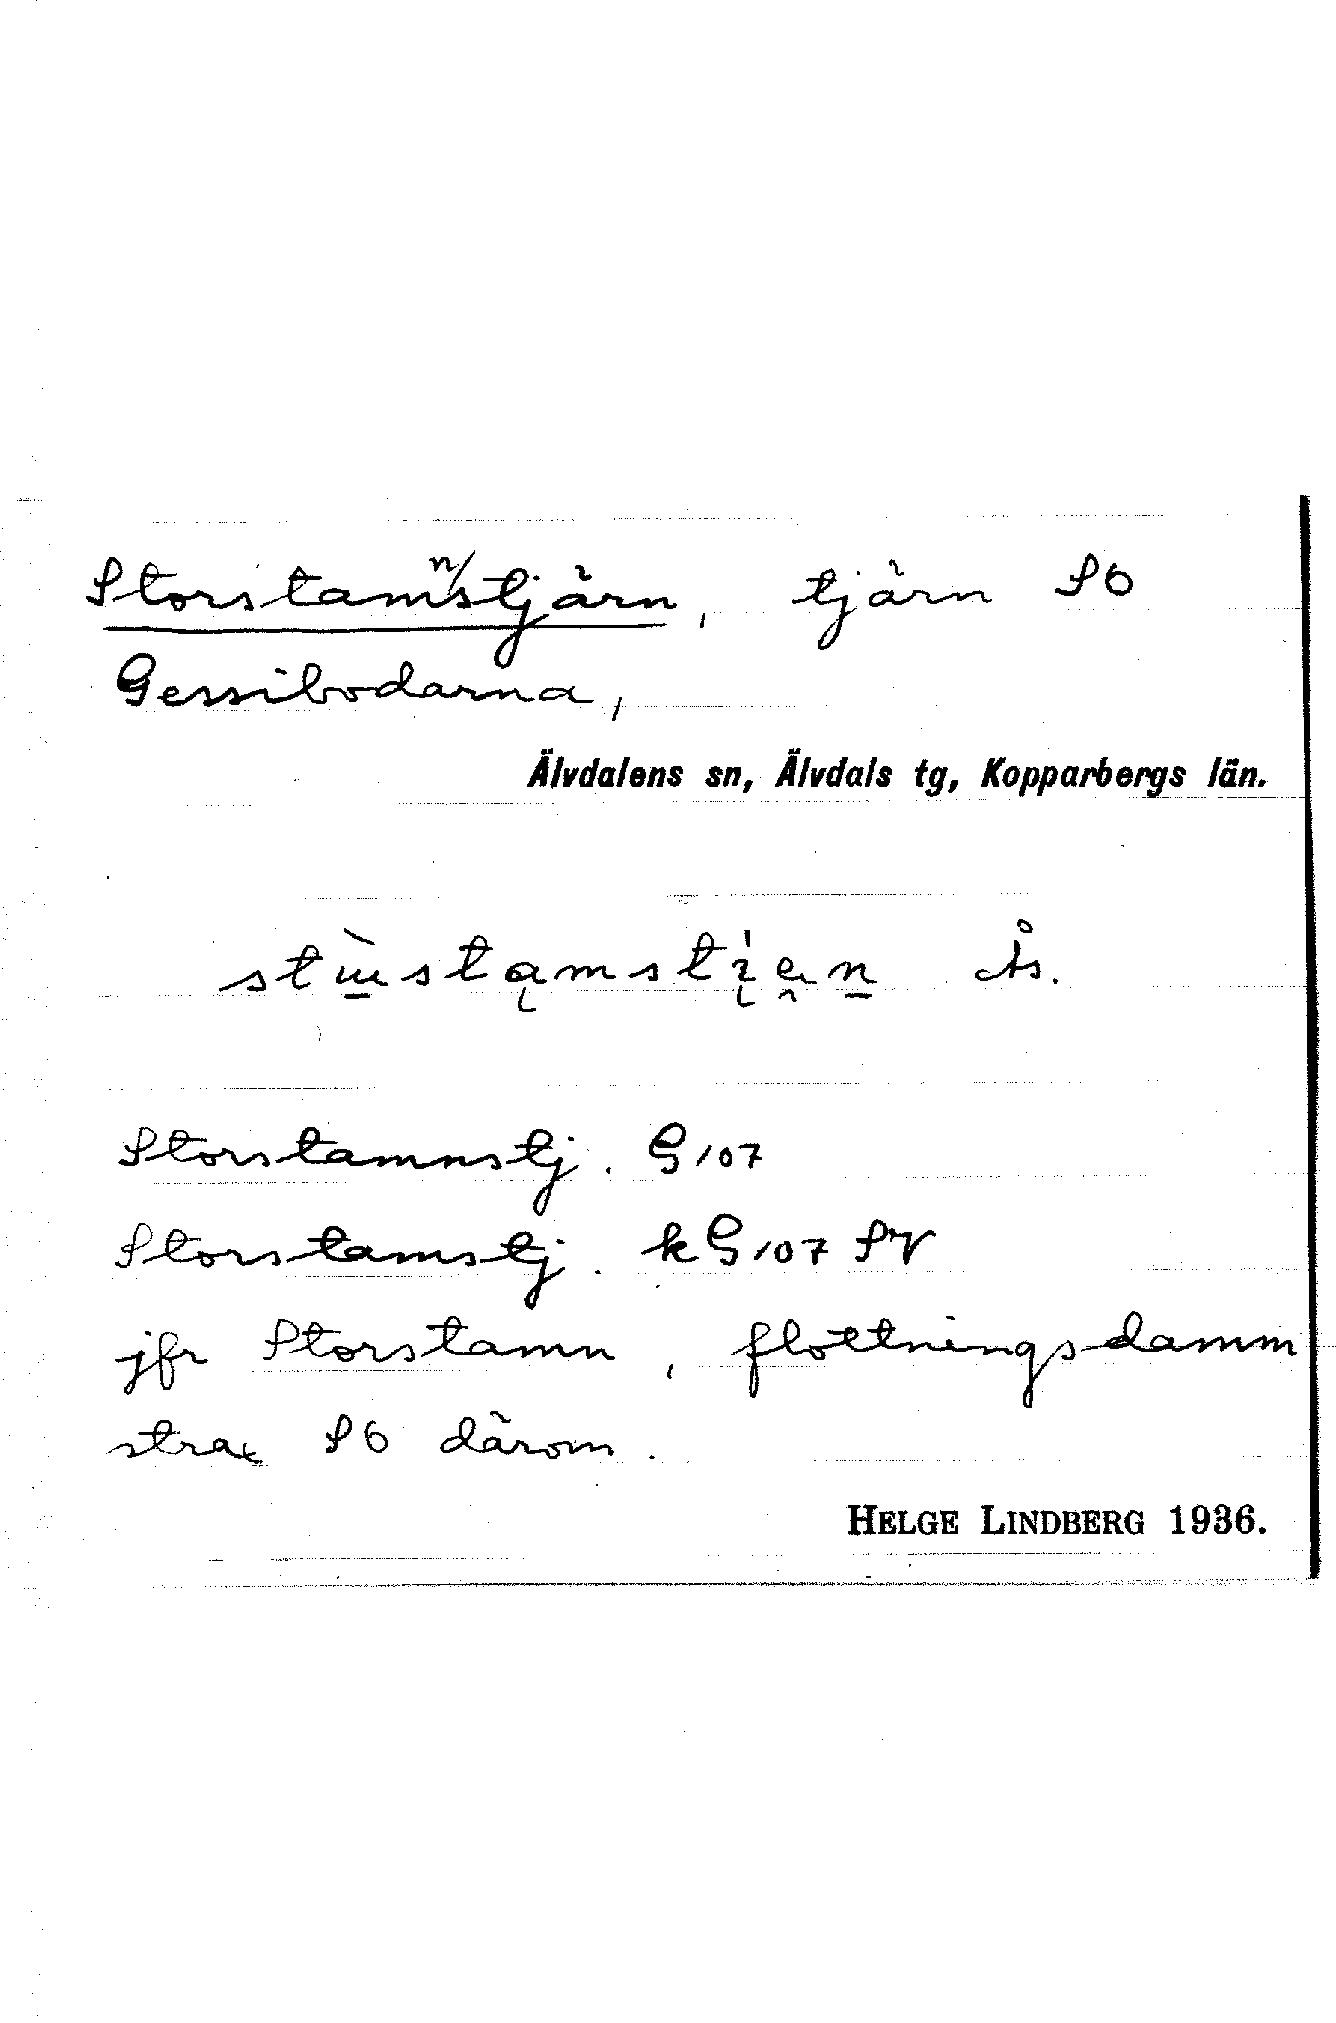 Storstamnstjärn, tjärn SO
Gessibodarna,
Älvdalens sn, Älvdals tg, Kopparbergs län.
Ås.
Storstamnstj. G107
Storstamstj. kG107 SV
jfr Storstamn, flottningsdamm
strax SO därom.
HELGE LINDBERG 1936.